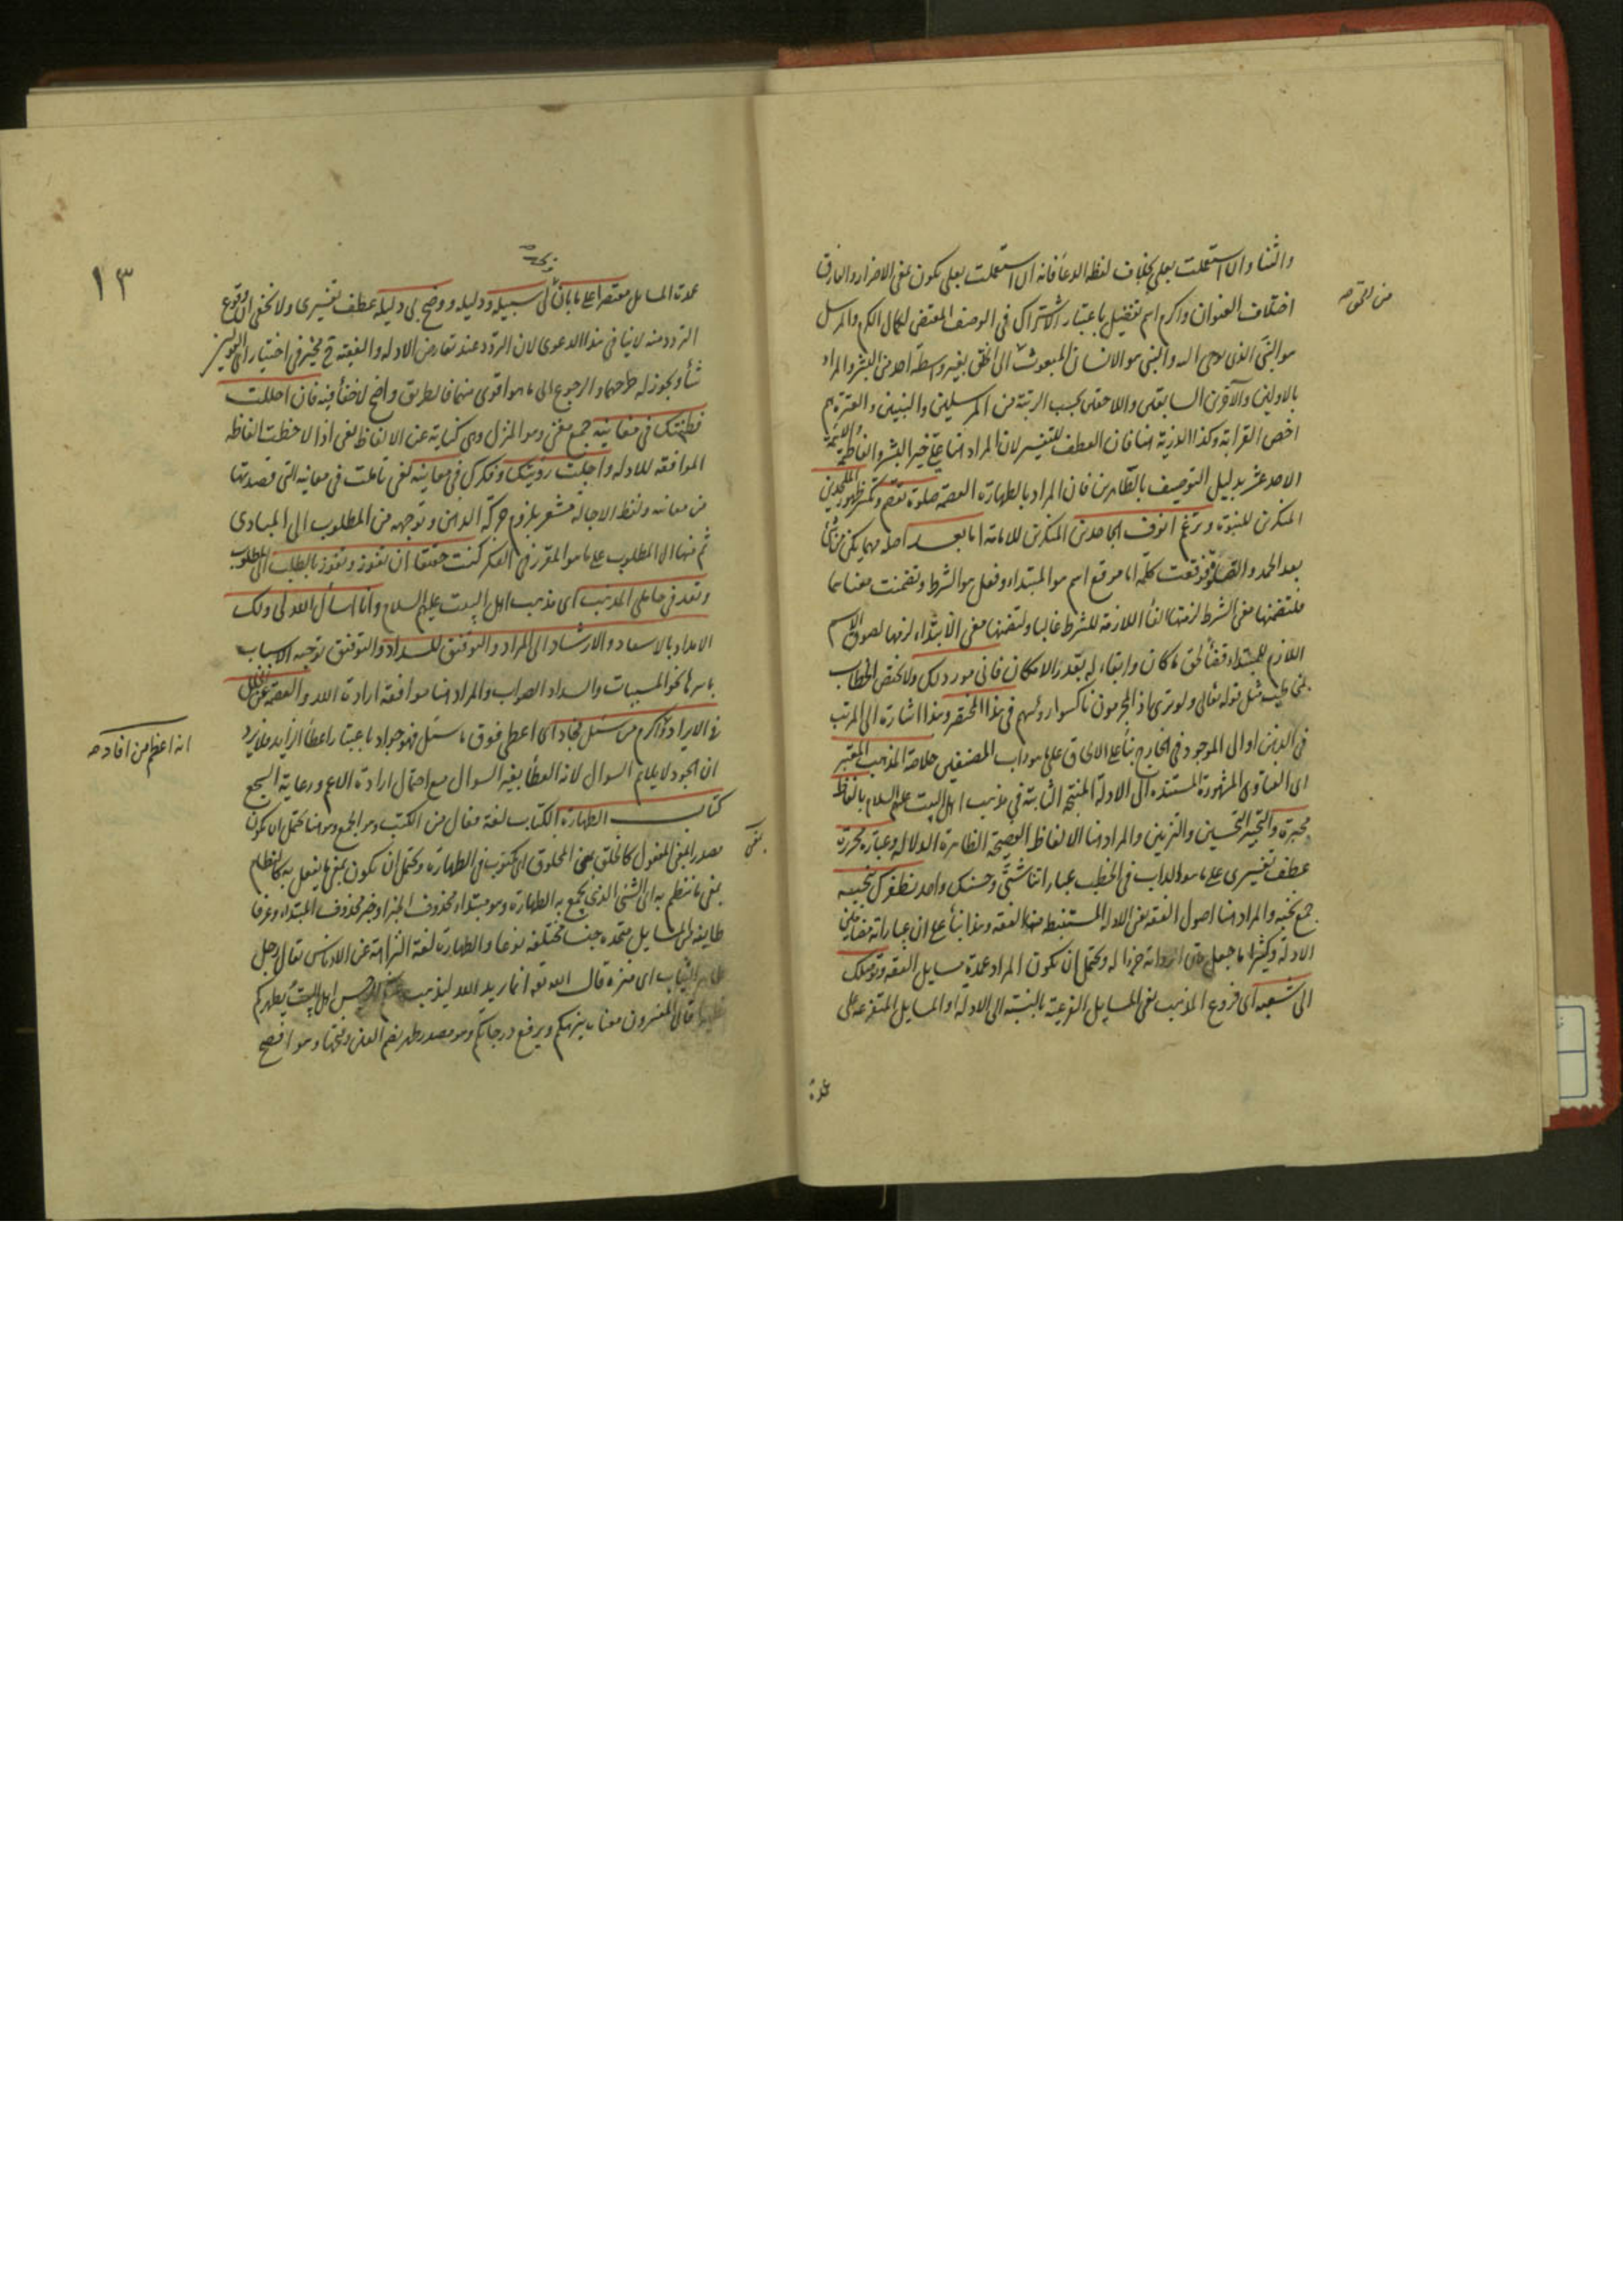 والثناء وان استعملت بعلى بخلاف لفظ الدعا فانه ان استعملت بعلى يكون بمعنى الاضرار والفارق
اختلاف العنوان واكرم اسم تفضيل باعتبار الاشتراك فى الوصف المقتضى لكمال الكرم والمرسل
هو النبى الذى يوحى اليه والنبى هو الانسان المبعوث الى الخلق بغير واسطة احد من البشر والمراد
بالاولين والآخرين السابقين واللاحقين بحسب الرتبة من المرسلين والنبيين والعترة هم
اخص القرابة وكذا الذرية هنا فان العطف للتفسير لان المراد هنا على خير البشر والفاطمة والائمة
الاحد عشر بدليل التوصيف بالطاهرين فان المراد بالطهارة العصمة صلوة تقصم وتكسر ظهور الملحدين
المنكرين للنبوة وترغم انوف الجاحدين المنكرين للامامة اما بعد اصله مهما يكن من شئ
بعد الحمد والصلوة فوقعت كلمة اما موقع اسم هو المبتداء وفعل هو الشرط وتضمنت معناهما
فلتضمنها معنى الشرط لزمتها الفا اللازمة للشرط غالبا ولتضمنها معنى الابتداء لزمها لصوق الاسم
اللازم للمبتداء قضأ لحق ما كان وابقاء له بقدر الامكان فانى مورد لك ولا يختص الخطاب
بمخاطب مثل قوله تعالى ولو ترى اذ المجرمون ناكسوا رؤسهم فى هذا المختصر وهذا اشارة الى المرتب
فى الذهن او الى الموجود فى الخارج بنأ على الالحاق على ما هو داب المصنفين خلاصة المذهب المعتبر
اى الفتاوى المشهورة المستنده الى الادلة المنتجة الثابتة فى مذهب اهل البيت عليهم السلام بالفاظ
محبرة والتحبير التحسين والتزيين والمراد هنا الالفاظ الفصيحة الظاهرة الدلالة وعبارة محررة
عطف تفسيرى على ما هو الداب فى الخطب عباراتنا شتى وحسنك واحد يظفرك بنخبه
جمع نخبه والمراد هنا اصول الفقه يعنى الادلة المستنبط منها الفقه وهذا بنأ على ان عباراته مضامين
الادلة وكثيرا ما جعل متن الرواية جزءا له ويحتمل ان يكون المراد عمدة مسايل الفقه وتوصلك
الى شعبه اى فروع المذهب يعنى المسايل الفرعية بالنسبة الى الادلة او المسايل المتفرعة على
عمدة
١٣
عمدة المسايل مقتصرا على ما بان لى سبيله ودليله ووضح لى دليله عطف تفسيرى ولا يخفى ان وقوع
التردد منه لا ينافى هذا الدعوى لان التردد عند تعارض الادله والفقيه ح مخير فى اختيار
شأ ويجوز له طرحهما والرجوع الى ما هو اقوى منهما فالطريق واضح لا خفأ فيه فان احللت
فطنتك فى مغانيه جمع مغنى وهو المنزل وهى كناية عن الالفاظ يعنى اذا لاحظت الفاظه
الموافقه للادله واجلت رويتك وفكرك فى معانيه يعنى تاملت فى معانيه التى قصدتها
من مغانيه ولفظ الاجالة مشعر بلزوم حركة الذهن وتوجهه من المطلوب الى المبادى
ثم منها الى المطلوب على ما هو المقرر فى الفكر كنت حقيقا ان تفوز وتفوز بالطلب اى المطلوب
وتعد فى حاملى المذهب اى مذهب اهل البيت عليهم السلام وانا اسأل الله لى ولك
الامداد بالاسعاد والارشاد الى المراد والتوفيق للسداد والتوفيق توجيه الاسباب
باسرها نحو المسببات والسداد الصواب والمراد هنا موافقة ارادة الله والعصمة عن الخلل
فى الايراد واكرم من سئل فجاد اى اعطى فوق ما سئل فهو جواد باعتبار اعطأ الزايد فلا يرد
ان الجود لا يلايم السوال لانه العطأ بغير السوال مع احتمال ارادة الاعم ورعاية السجع
كتاب الطهارة الكتاب لغة فعال من الكتب وهو الجمع وهو هنا يحتمل ان يكون
مصدرا بمعنى المفعول كالخلق بمعنى المخلوق اى مكتوب فى الطهارة ويحتمل ان يكون بمعنى ما يفعل به كالنظام
بمعنى ما ينتظم به اى الشئ الذى يجمع به الطهارة وهو مبتداء محذوف الخبر او خبر محذوف المبتداء وعرفا
طايفة من المسايل متحده جنسا مختلفه نوعا والطهارة لغة النزاهة عن الادناس يقال رجل
طاهر الثياب اى منزه قال الله تعه انما يريد الله ليذهب عنكم الرجس اهل البيت ويطهركم
تطهيرا قال المفسرون معناه ينزهكم ويرفع درجاتكم وهو مصدر طهر بضم العين وفتحها وهو افصح
انه اعظم من افاد صه